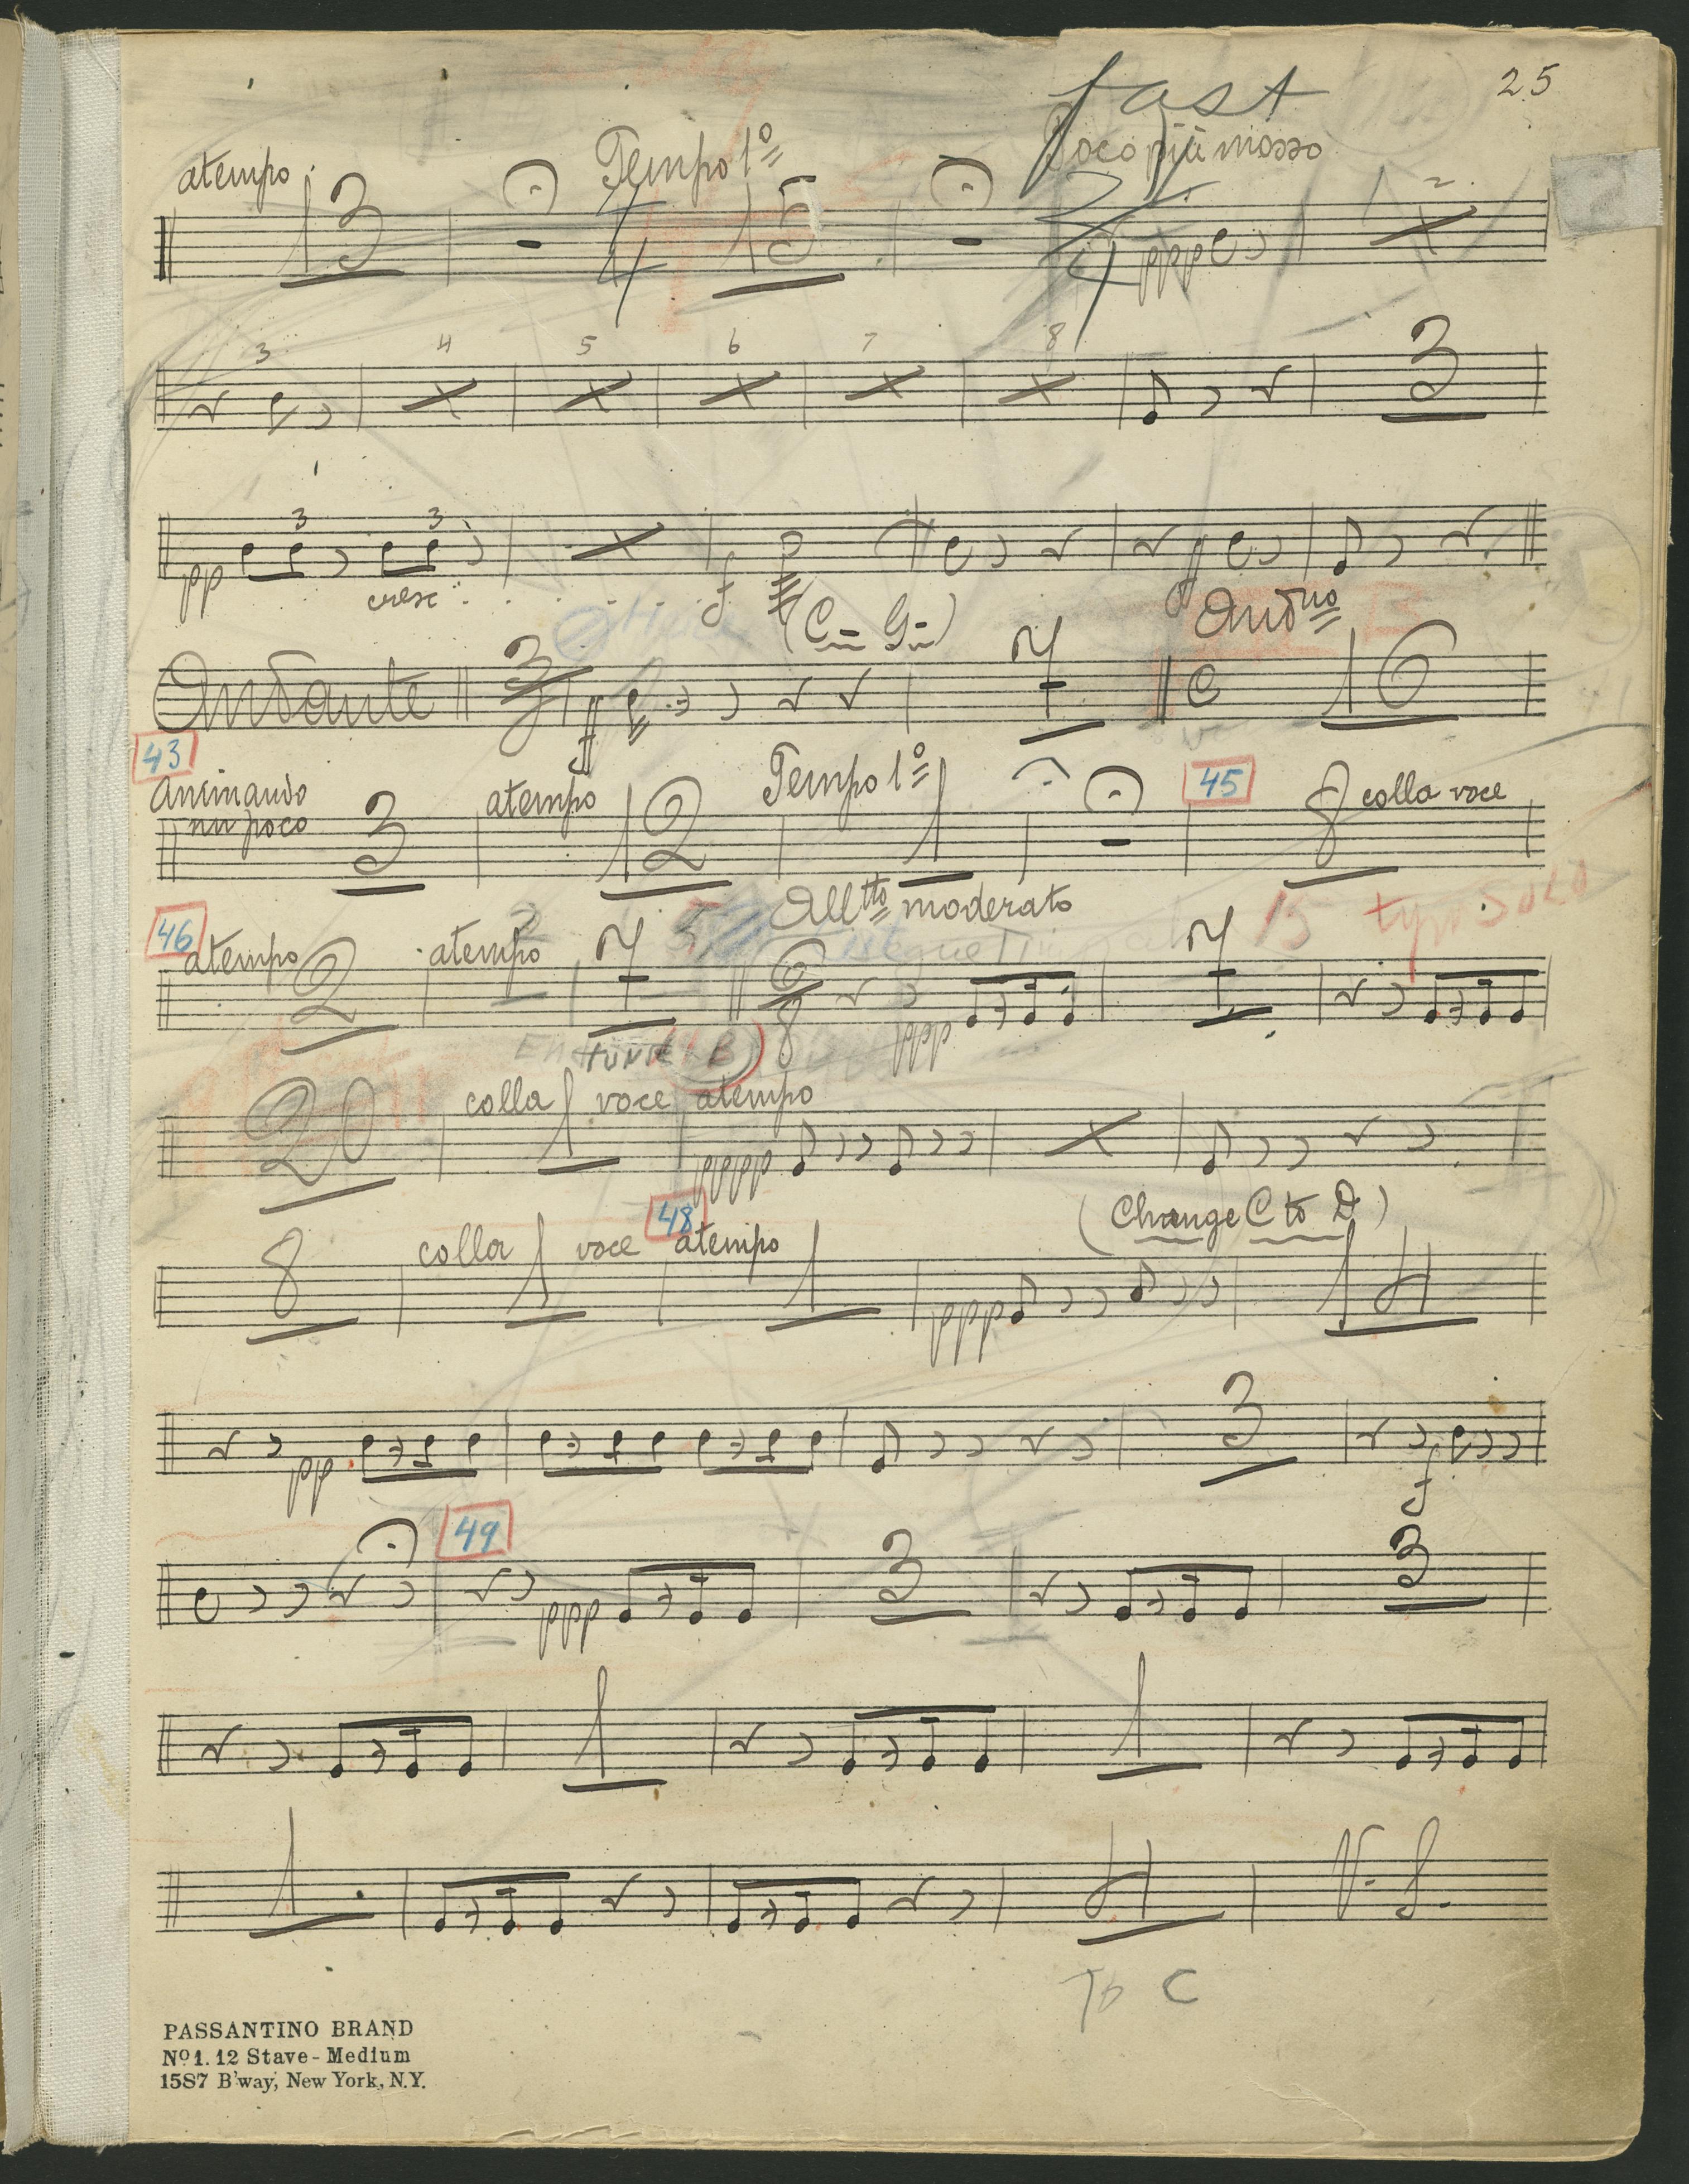 25
fast
atempo Tempo 1º Poco più mosso
13 4/4 15 2/4 ppp 2
3 4 5 6 7 8 3
pp 3 cresc 3 f ff
(C= G=) Andno
Andante 3 ff 7 C 16
43 45
Animando un poco 3 atempo 12 Tempo 1º 1 8 colla voce
46 Alltto moderato 15 tym SOLO
atempo 2 atempo 2 7 6/8 ppp 7
TUNE B
20 colla 1 voce atempo pppp
48 (Change C to D)
8 colla 1 voce atempo 1 ppp 14
pp 3 f
49
ppp 3 3
1 1
1 4 V. S.
To C
PASSANTINO BRAND
Nº 1. 12 Stave - Medium
1587 B'way, New York, N.Y.